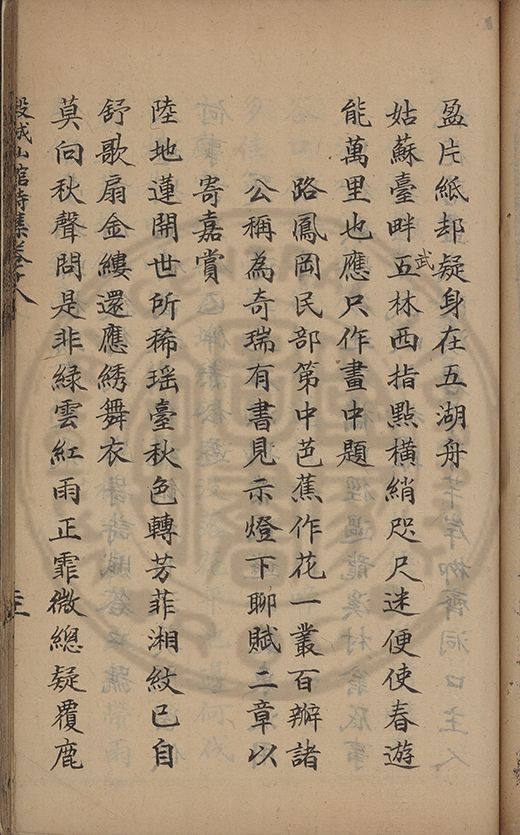 盈片紙却疑身在五湖舟
姑蘇臺畔五林西指點橫綃咫尺迷便使春遊
武
能萬里也應只作畫中題
路鳳岡民部第中芭蕉作花一叢百瓣諸
公稱為奇瑞有書見示燈下聊賦二章以
寄嘉賞
陸地蓮開世所稀瑶臺秋色轉芳菲湘紋已自
舒歌扇金縷還應綉舞衣
莫向秋聲問是非綠雲紅雨正霏微總疑覆鹿
穀城山館詩集卷十八